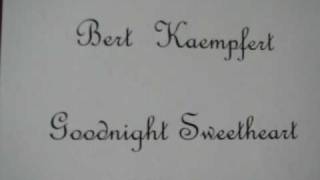 Bert Kaempfert
Goodnight Sweetheart